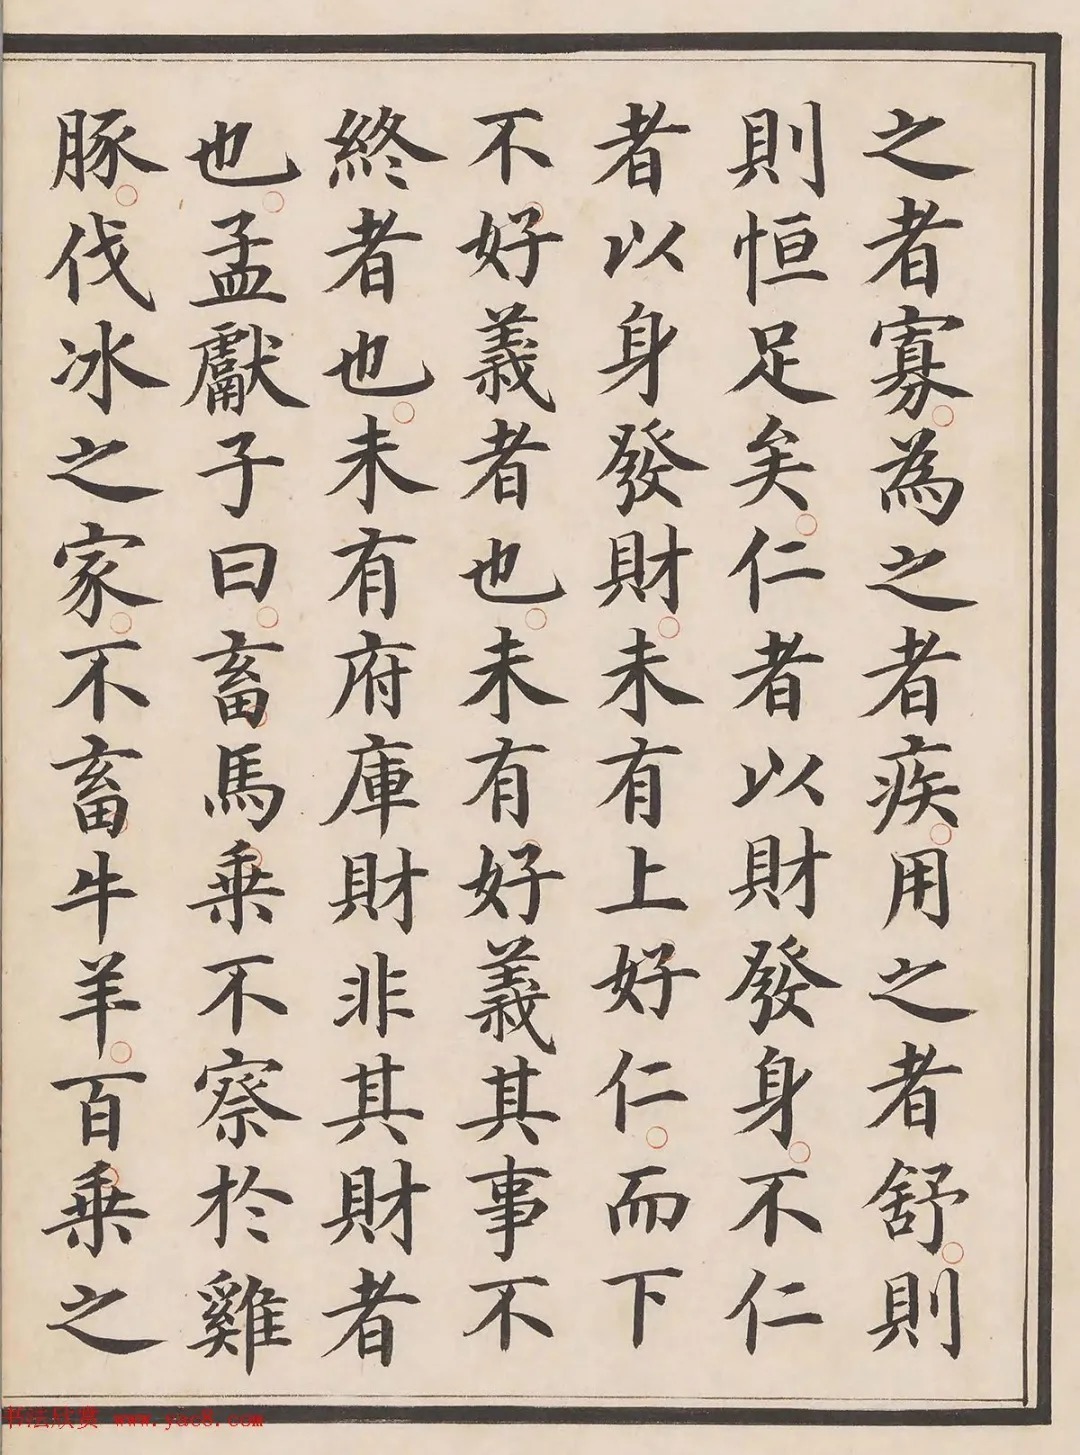 之者寡為之者疾用之者舒則
則恒足矣仁者以財發身不仁
者以身發財未有上好仁而下
不好義者也未有好義其事不
終者也未有府庫財非其財者
也孟獻子曰畜馬乘不察於雞
豚伐冰之家不畜牛羊百乘之
书法欣赏 www.yac8.com